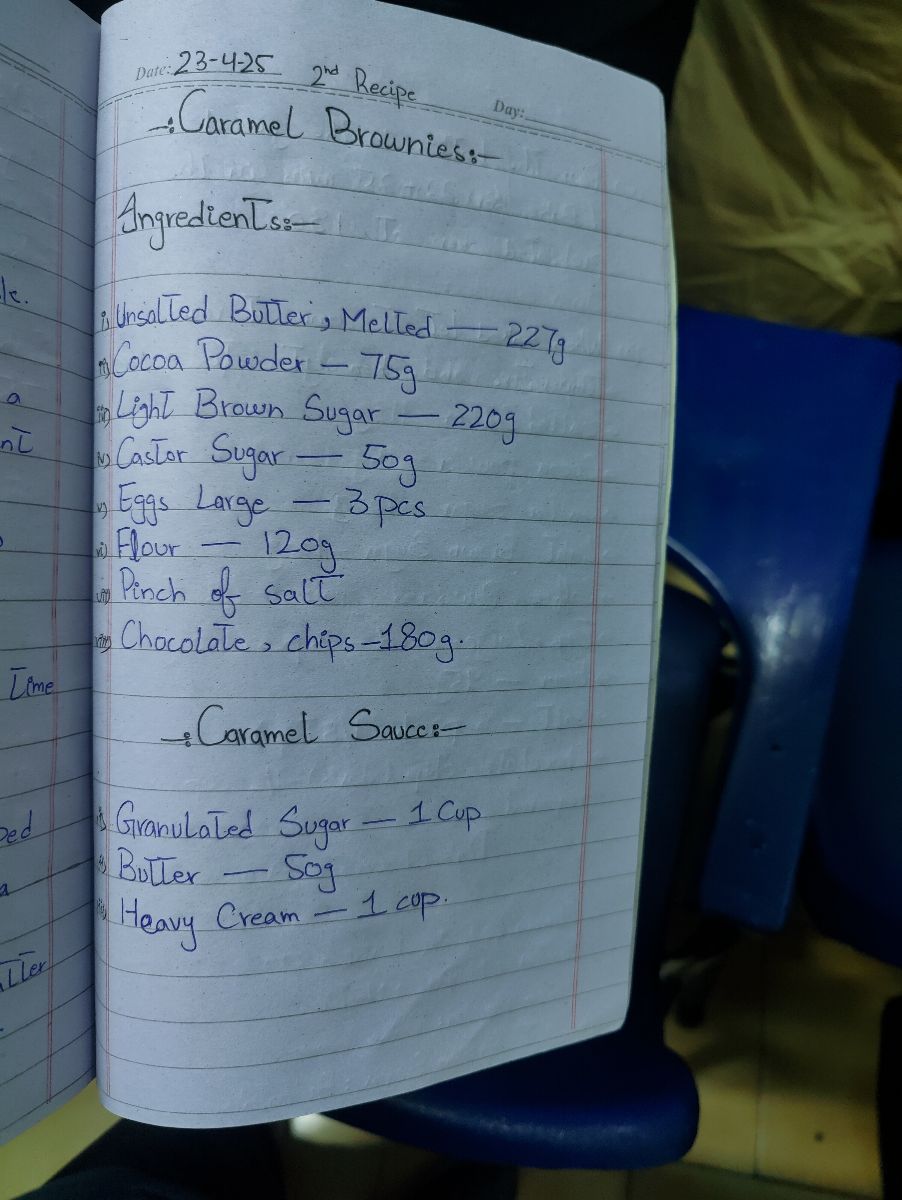 Date: 23-4-25 2nd Recipe Day:
-: Caramel Brownies:-
Ingredients:-
i) Unsalted Butter, Melted — 227g
ii) Cocoa Powder — 75g
iii) Light Brown Sugar — 220g
iv) Castor Sugar — 50g
v) Eggs Large — 3 pcs
vi) Flour — 120g
vii) Pinch of salt
viii) Chocolate, chips - 180g.
-: Caramel Sauce:-
i) Granulated Sugar — 1 Cup
ii) Butter — 50g
iii) Heavy Cream — 1 cup.
a
Time
a